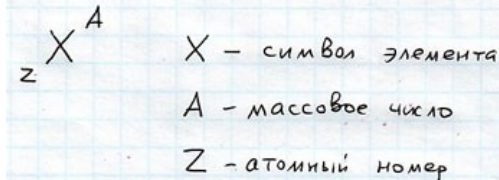 zXᴬ X – символ элемента
A – массовое число
Z – атомный номер